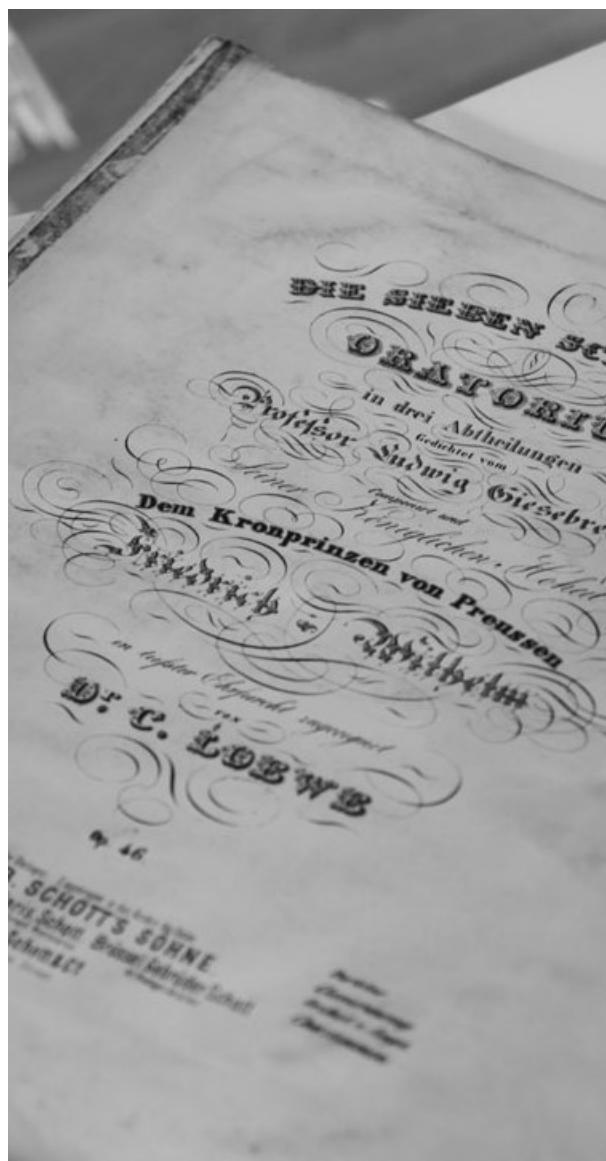 DIE SIEBEN SC
ORATORIU
in drei Abtheilungen
Gedichtet vom
Professor Ludwig Giesebre
Componirt und
Seiner Königlichen Hoheit
Dem Kronprinzen von Preussen
Friedrich Wilhelm
in tiefster Ehrfurcht zugeeignet
von
Dr. C. LOEWE
Op. 46
SCHOTT'S SÖHNE
Schott Brüssel Gebrüder Schott
Schott & Co